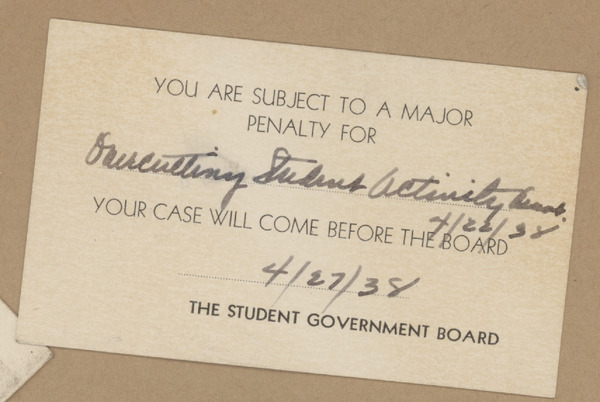 YOU ARE SUBJECT TO A MAJOR
PENALTY FOR
Overcutting Student Activity
4/22/38
YOUR CASE WILL COME BEFORE THE BOARD
4/27/38
THE STUDENT GOVERNMENT BOARD